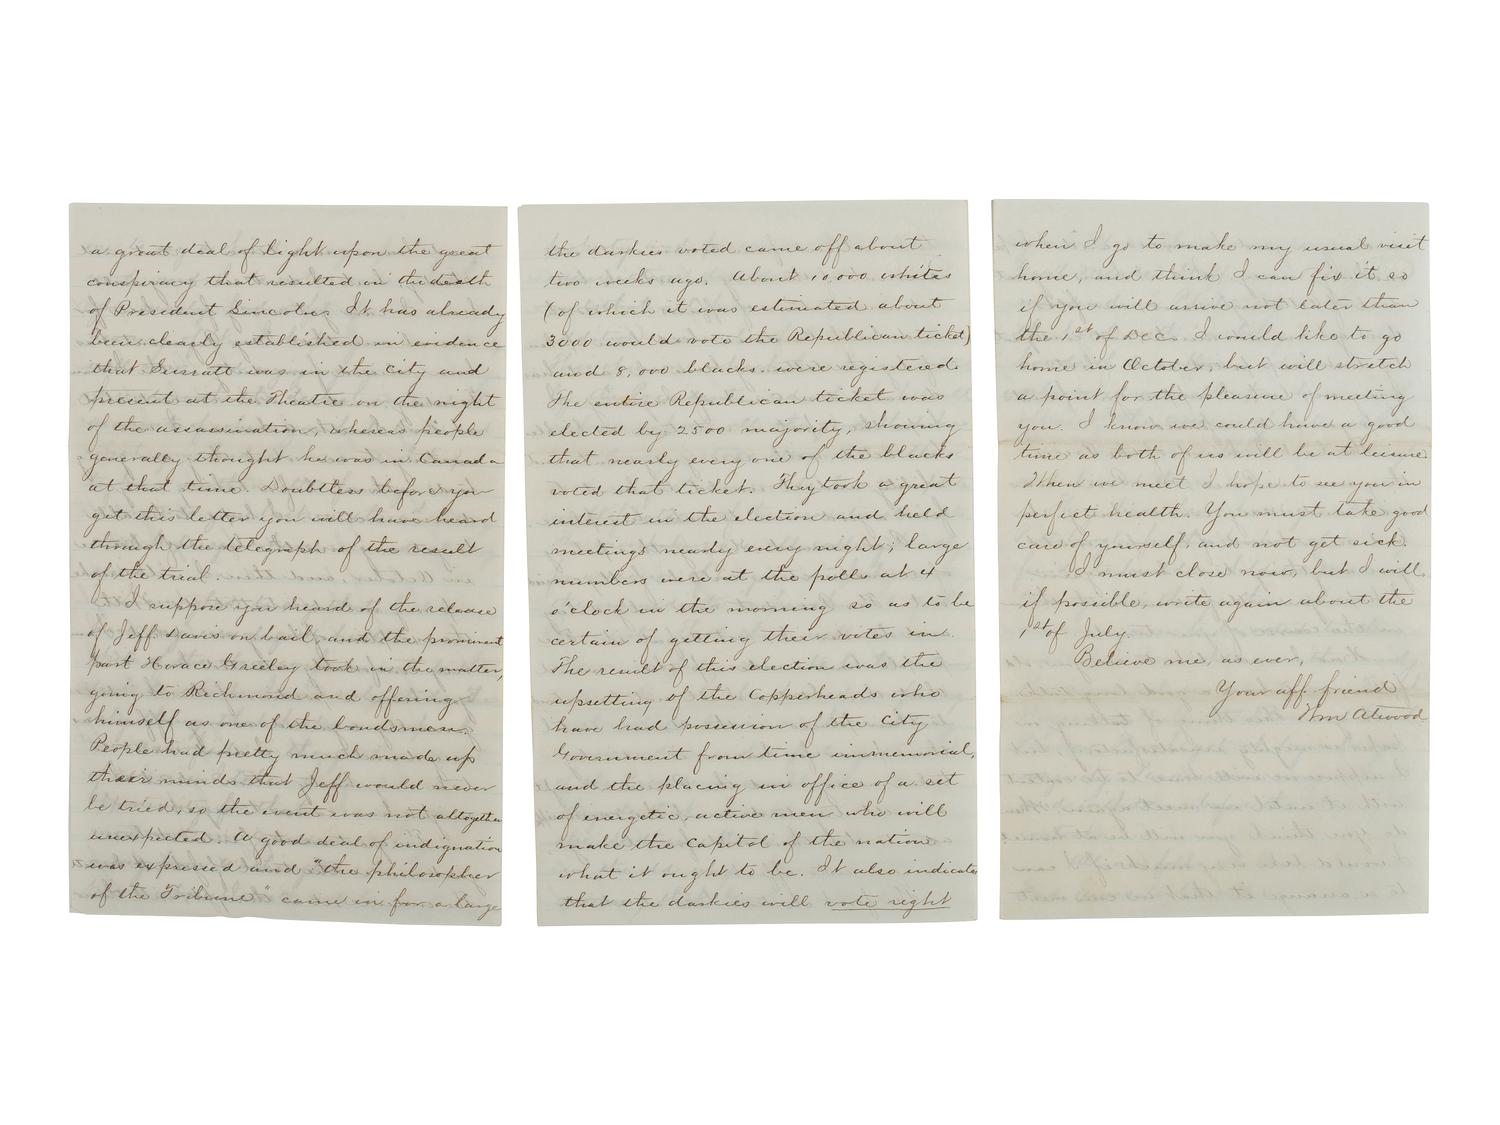 a great deal of light upon the great
conspiracy that resulted in the death
of President Lincoln. It has already
been clearly established in evidence
that Surratt was in the city and
present at the Theatre on the night
of the assassination, whereas people
generally thought he was in Canada
at that time. Doubtless before you
get this letter you will have heard
through the telegraph of the result
of the trial.
I suppose you heard of the release
of Jeff Davis on bail, and the prominent
part Horace Greeley took in the matter,
going to Richmond and offering
himself as one of the bondsmen.
People had pretty much made up
their minds that Jeff would never
be tried, so the event was not altogether
unexpected. A good deal of indignation
was expressed and "the philosopher
of the Tribune" came in for a large
the darkies voted came off about
two weeks ago. About 10,000 whites
(of which it was estimated about
3000 would vote the Republican ticket)
and 8,000 blacks were registered.
The entire Republican ticket was
elected by 2500 majority, showing
that nearly every one of the blacks
voted that ticket. They took a great
interest in the election and held
meetings nearly every night; large
numbers were at the polls at 4
o'clock in the morning so as to be
certain of getting their votes in.
The result of this election was the
upsetting of the Copperheads who
have had possession of the City
Government from time immemorial,
and the placing in office of a set
of energetic, active men who will
make the Capitol of the nation
what it ought to be. It also indicates
that the darkies will vote right
when I go to make my usual visit
home, and think I can fix it so
if you will arrive not later than
the 1st of Dec. I would like to go
home in October, but will stretch
a point for the pleasure of meeting
you. I know we could have a good
time as both of us will be at leisure.
When we meet I hope to see you in
perfect health. You must take good
care of yourself, and not get sick.
I must close now, but I will
if possible, write again about the
1st of July.
Believe me, as ever,
Your aff friend
Wm Atwood